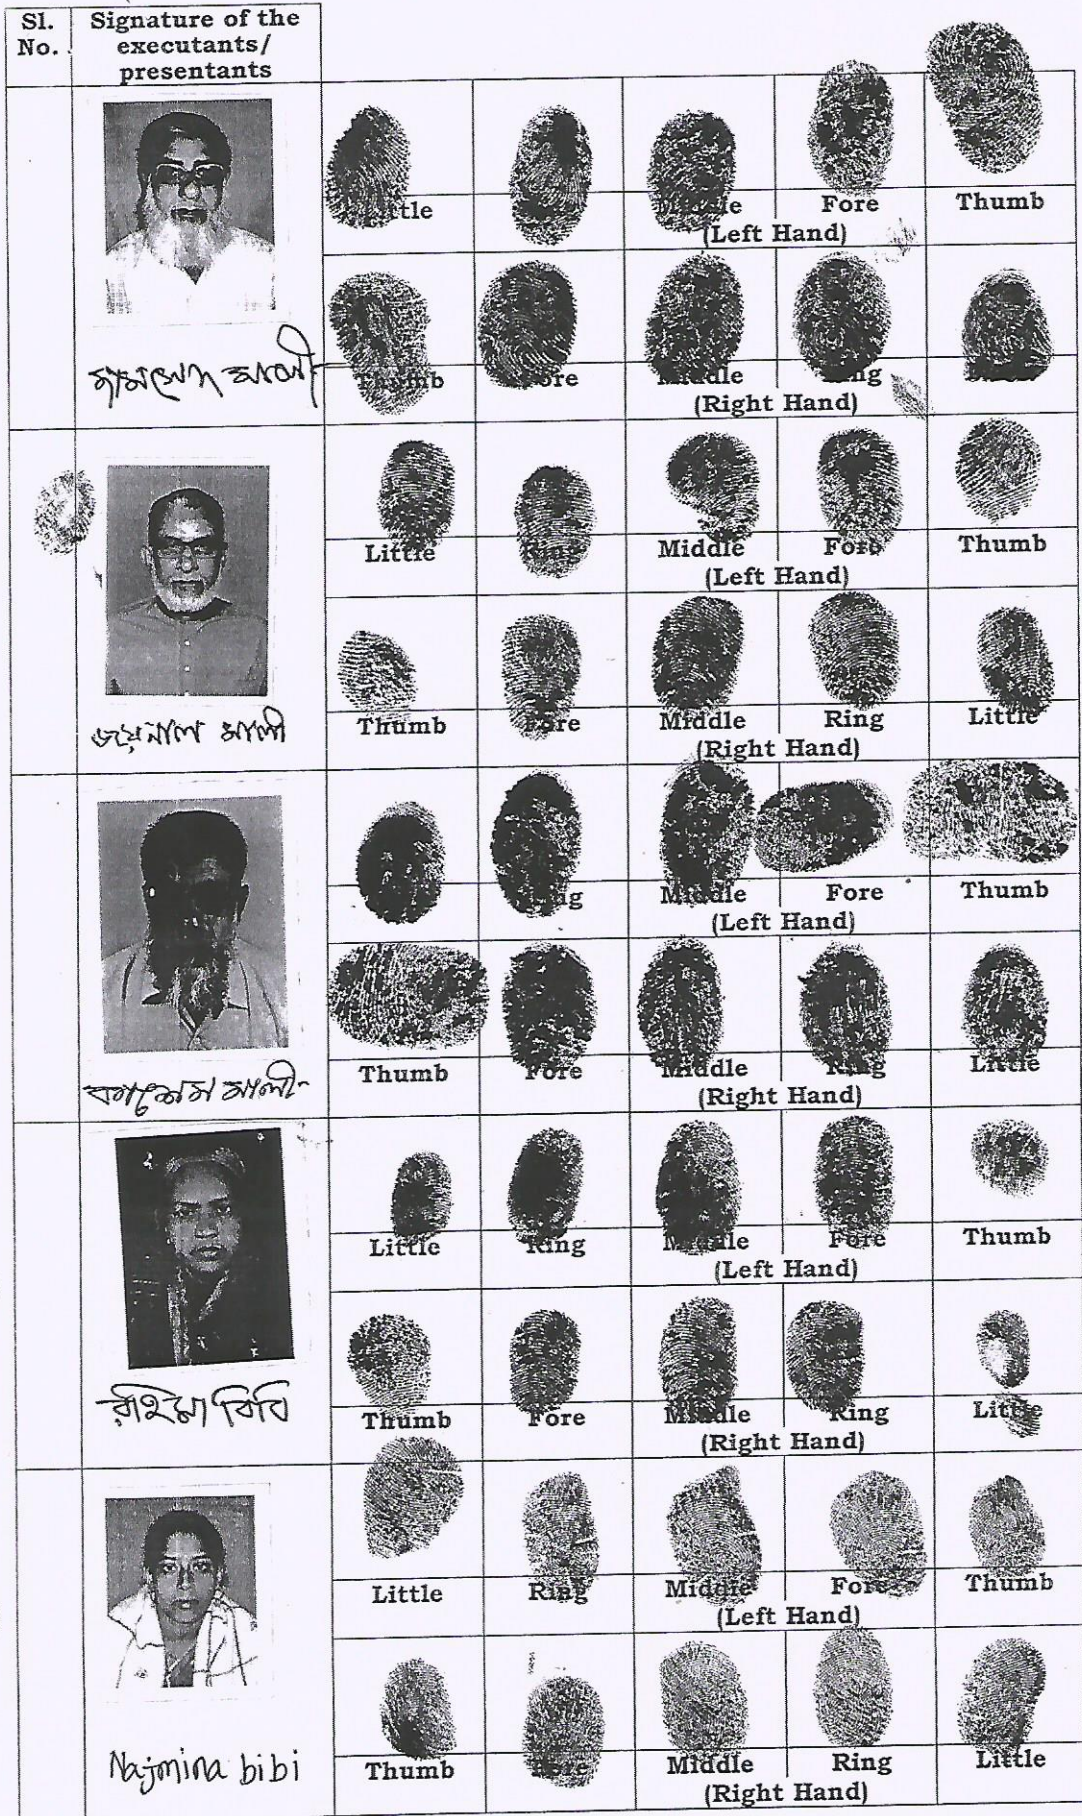 Sl. No.
Signature of the executants/ presentants
Little Middle Fore Thumb
(Left Hand)
Thumb Fore Middle Ring
(Right Hand)
Little Ring Middle Fore Thumb
(Left Hand)
জয়নাল আলী
Thumb Fore Middle Ring Little
(Right Hand)
Ring Middle Fore Thumb
(Left Hand)
কাশেম আলী
Thumb Fore Middle Ring Little
(Right Hand)
Little Ring Middle Fore Thumb
(Left Hand)
রহিমা বিবি
Thumb Fore Middle Ring Little
(Right Hand)
Little Ring Middle Fore Thumb
(Left Hand)
Najmina bibi
Thumb Fore Middle Ring Little
(Right Hand)